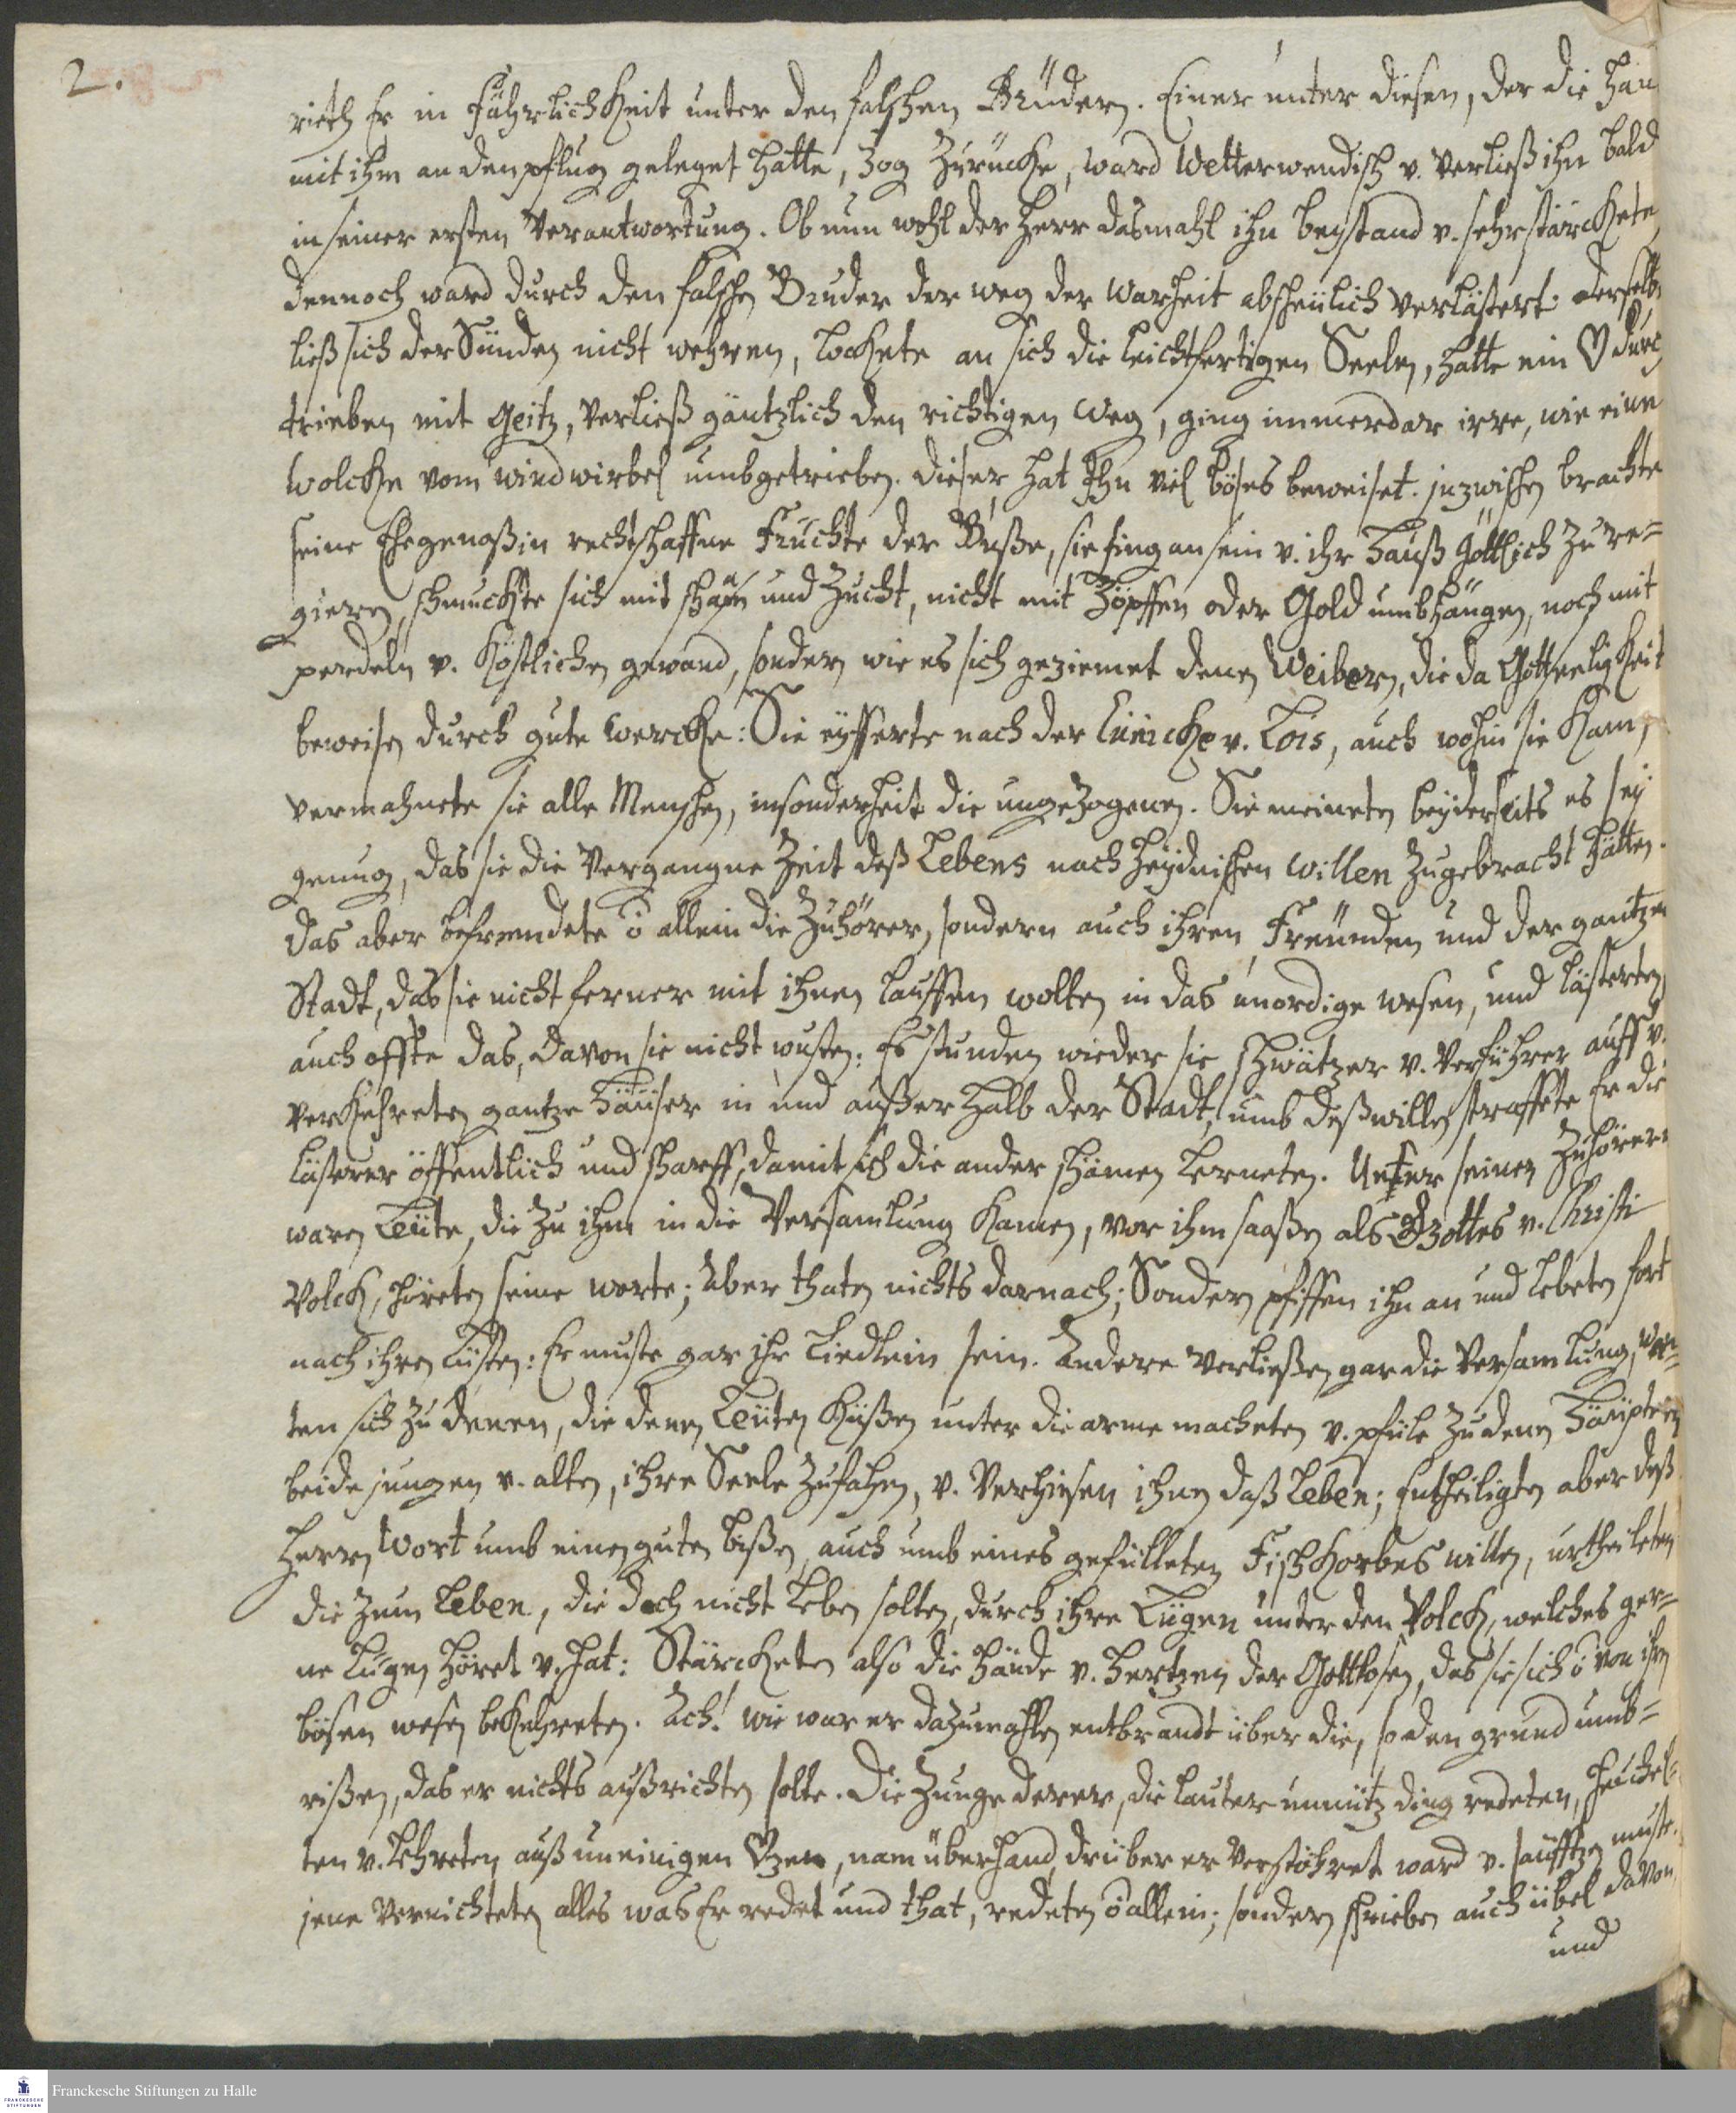 2.
rieth Er in Fährlichkeit unter den falschen Brüdern. Einer unter diesen, der die Han
mit ihm an den pflug geleget hatte, zog zurücke, ward Wetterwendisch v. verließ ihn bald
in seiner ersten Verantwortung. Ob nun wohl der Herr dasmahl ihn beystand v. sehr stärckete,
dennoch ward durch den falschen Bruder der weg der Warheit abscheülich verlästert: derselbe
ließ sich der Sünden nicht wehren, lockete an sich die leichtfertigen Seelen, hatte ein ♡ durch
trieben mit Geitz, verließ gäntzlich den richtigen Weg, ging immerdar irre, wie eine
Wolcke vom windwirbel umbgetrieben. dieser hat Ihn viel böses beweiset. inzwischen brachte
seine Ehegenoßin rechtschaffne Früchte der Buße, sie fing an sein v. ihr Hauß Göttlich zu re=
gieren, schmuckte sich mit scham und Zucht, nicht mit Zöpffen oder Gold umbhängen, noch mit
perdeln v. Köstlichen gewand, sondern wie es sich geziemet denen Weibern, die da Gottseeligkeit
beweisen durch gute Wercke: Sie eyfferte nach der Eunicke v. Lois, auch wohin sie kam,
vermahnete sie alle Menschen, insonderheit die ungezogenen. Sie meineten beyderseits es sey
genug, das sie die Vergangne Zeit deß Lebens nach Heydnischen Willen zugebracht hätten.
das aber befremdete ō allein die Zuhörer, sondern auch ihren Freünden und der gantzen
Stadt, das sie nicht ferner mit ihnen lauffen wolten in das unordige wesen, und lästerten
auch offte das, davon sie nicht wusten: Es stunden wieder sie schwätzer v. Verführer auff v.
verkehreten gantze Häüser in und außerhalb der Stadt, umb deßwillen straffete Er die
lästerer öffentlich und scharff, damit sich die ander schämen lerneten. Unter seinen Zuhörern
waren Leüte, die zu ihm in die Versamlung kamen, vor ihm saaßen als Gottes v. Christi
Volck, höreten seine worte; aber thaten nichts darnach; Sondern pfiffen ihn an und lebeten fort
nach ihren Lüsten: Er muste gar ihr Liedlein sein. Andere verließen gar die Versamlung, wen=
ten sich zu denen, die denen Leüten Küßen unter die arme macheten v. pfüle zu denen Häüptern
beide jungen v. alten, ihre Seele zufahen, v. Verhiesen ihnen daß Leben; Entheiligten aber deß
Herrn Wort umb einen guten bißen, auch umb eines gefülleten Fischkorbes willen, urtheileten
die zum Leben, die doch nicht leben solten, durch ihre Lügen unter den Volck, welches ger=
ne Lugen höret v. hat: Stärcketen also die Hände v. Hertzen der Gottlosen, das sie sich ō von ihren
bösen wesen bekehreten. Ach! wie war er dazumahlen entbrandt über die, so den grund umb=
rißen, das er nichts außrichten solte. Die Zunge derer, die lauter unnütz ding redeten, heüchel=
ten v. lehreten auß uneinigen ♡zen, nam überhand, drüber er verstöhret ward v. säufftzen muste.
jene vernichteten alles was Er redet und that, redeten ō allein; sondern schrieben auch übel davon
und
Franckesche Stiftungen zu Halle